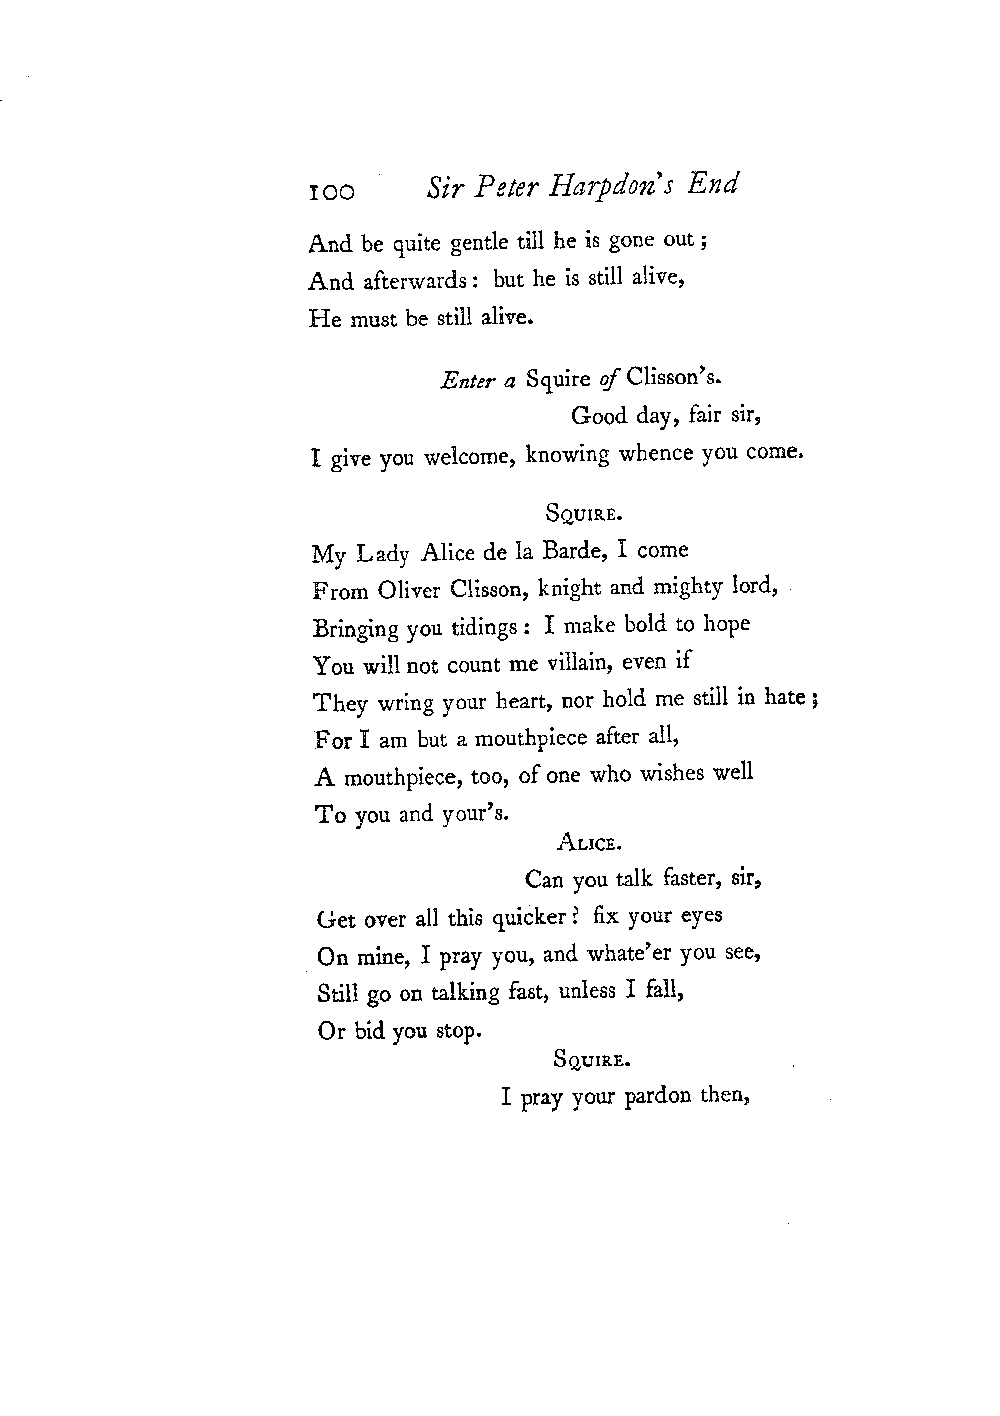 100 Sir Peter Harpdon's End
And be quite gentle till he is gone out;
And afterwards: but he is still alive,
He must be still alive.
Enter a Squire of Clisson's.
Good day, fair sir,
I give you welcome, knowing whence you come.
SQUIRE.
My Lady Alice de la Barde, I come
From Oliver Clisson, knight and mighty lord,
Bringing you tidings: I make bold to hope
You will not count me villain, even if
They wring your heart, nor hold me still in hate;
For I am but a mouthpiece after all,
A mouthpiece, too, of one who wishes well
To you and your's.
ALICE.
Can you talk faster, sir,
Get over all this quicker? fix your eyes
On mine, I pray you, and whate'er you see,
Still go on talking fast, unless I fall,
Or bid you stop.
SQUIRE.
I pray your pardon then,